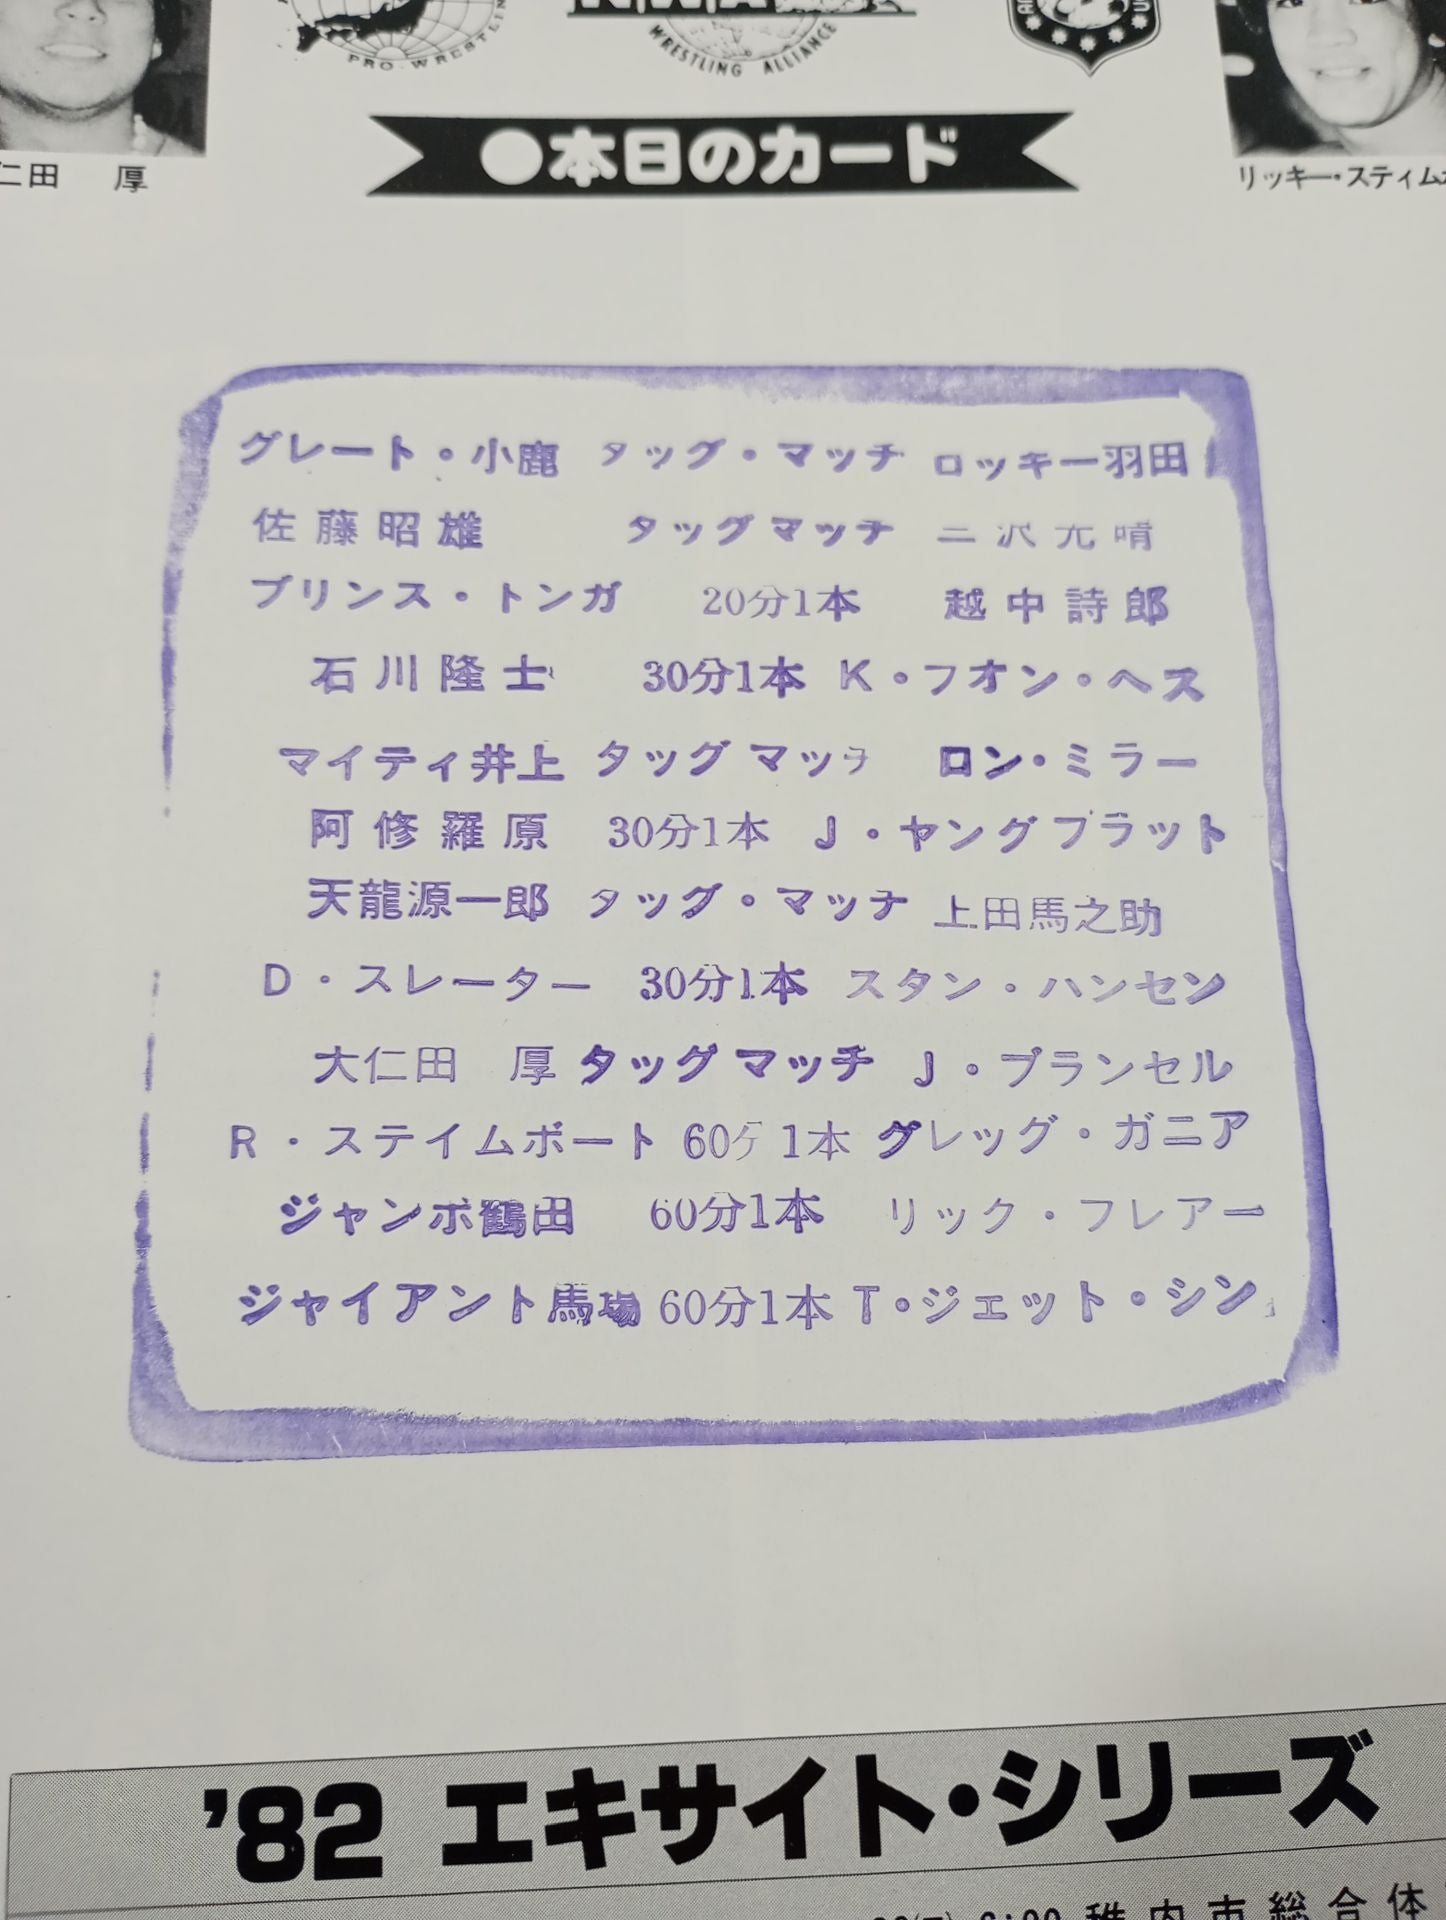 PRO-WRESTLIN
WRESTLING ALLIANCE
仁田 厚
●本日のカード
リッキー・スティム
グレート・小鹿 タッグ・マッチ ロッキー羽田
佐藤昭雄 タッグマッチ 三沢光晴
プリンス・トンガ 20分1本 越中詩郎
石川隆士 30分1本 K・フオン・ヘス
マイティ井上 タッグマッチ ロン・ミラー
阿修羅原 30分1本 J・ヤングブラット
天龍源一郎 タッグ・マッチ 上田馬之助
D・スレーター 30分1本 スタン・ハンセン
大仁田 厚 タッグマッチ J・ブランセル
R・ステイムボート 60分1本 グレッグ・ガニア
ジャンボ鶴田 60分1本 リック・フレアー
ジャイアント馬場 60分1本 T・ジェット・シン
'82 エキサイト・シリーズ
6:00 稚内市総合体